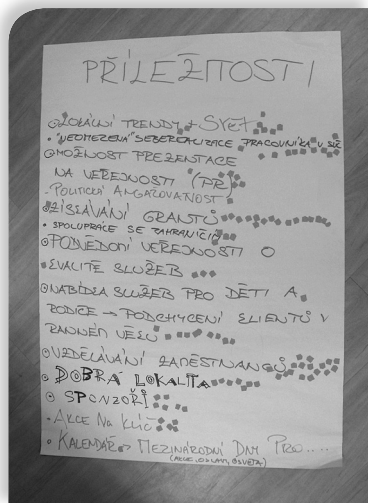 PŘÍLEŽITOSTI
LOKÁLNÍ TRENDY + SVĚT
"NEOMEZENÁ" SEBEREALIZACE PRACOVNÍKA V
MOŽNOST PREZENTACE
NA VEŘEJNOSTI (PR)
- POLITICKÁ ANGAŽOVANOST
ZÍSKÁVÁNÍ GRANTŮ
• SPOLUPRÁCE SE ZAHRANIČÍM
PODVĚDOMÍ VEŘEJNOSTI O
KVALITĚ SLUŽEB
NABÍDKA SLUŽEB PRO DĚTI A
RODIČE → PODCHYCENÍ KLIENTŮ V
RANNÉM VĚKU
VZDĚLÁVÁNÍ ZAMĚSTNANCŮ
DOBRÁ LOKALITA
SPONZOŘI
• AKCE NA KLÍČ
• KALENDÁŘ → MEZINÁRODNÍ DNY PRO....
OSVĚTA)